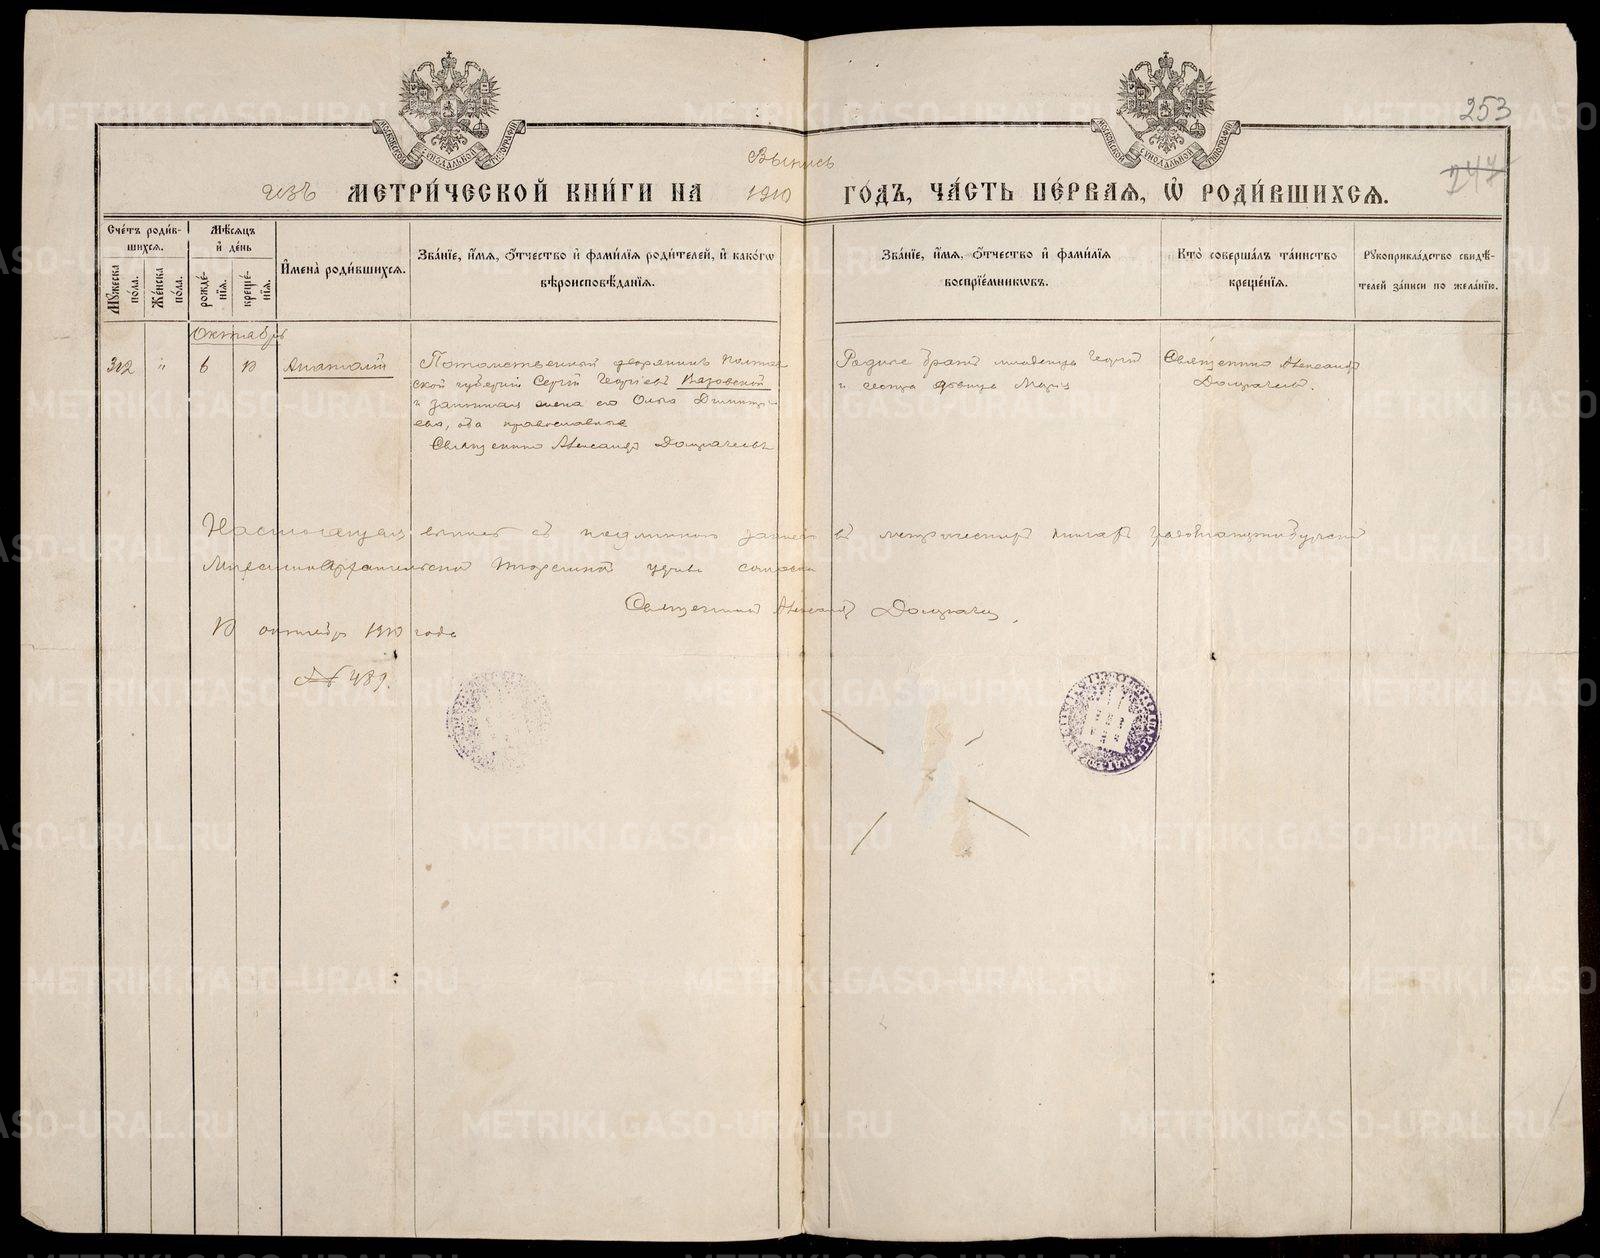 253
247
МОСКОВСКОЙ СѴНОДАЛЬНОЙ ТИПОГРАФІИ
МОСКОВСКОЙ СѴНОДАЛЬНОЙ ТИПОГРАФІИ
Выпись
изъ МЕТРИ́ЧЕСКОЙ КНИ́ГИ НА 1910 ГО́ДЪ, ЧА́СТЬ ПЕ́РВАЯ, Ѡ РОДИ́ВШИХСЯ.
Сче́тъ роди́вшихся.
Мꙋ́жеска по́ла.
Же́нска по́ла.
Мѣ́сяцъ и҆ де́нь
рожде́нїя.
креще́нїя.
И҆мена̀ роди́вшихся.
Зва́нїе, и҆́мя, ѻ҆́тчество и҆ фами́лїя роди́телей, и҆ како́гѡ
вѣроисповѣ́данїя.
Зва́нїе, и҆́мя, ѻ҆́тчество и҆ фами́лїя
воспрїе́мникѡвъ.
Кто̀ соверша́лъ та́инство
креще́нїя.
Рꙋкоприкла́дство свидѣ́-
телей за́писи по жела́нїю.
Октябрь
312 " 6 10 Анатолій
Потомственный дворянинъ
ской губерніи Сергій Георгіевъ
и законная жена его Ольга Димитрі-
ева, оба православные
Священникъ Александръ
Родные братъ младенца Георгій
и сестра дѣвица Марія
Священникъ Александръ
Настоящая выпись съ подлинною записью въ метрической книгѣ
Михаило-Архангельской Тюремной церкви
Священникъ Александръ
10 октября 1910 года
№ 489.
METRIKI.GASO-URAL.RU